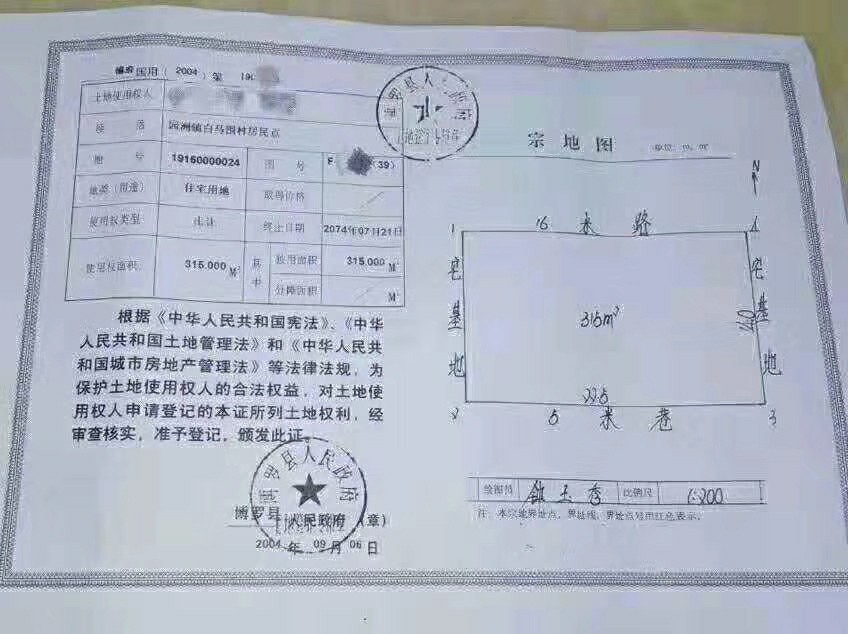 国用（2004）第 190
土地使用权人
座 落 园洲镇白马围村居民点
地 号 19160000024 图 号 F 39）
地类（用途） 住宅用地 取得价格
使用权类型 出让 终止日期 2074年07月21日
使用权面积 315.000 M² 其中 独用面积 315.000 M²
分摊面积 M²
根据《中华人民共和国宪法》、《中华
人民共和国土地管理法》和《中华人民共
和国城市房地产管理法》等法律法规，为
保护土地使用权人的合法权益，对土地使
用权人申请登记的本证所列土地权利，经
审查核实，准予登记，颁发此证。
博罗县人民政府
博罗县 人民政府（章）
2004 年 09 月 06 日
博罗县人民政府
宗地图 单位：m、m²
N
1 16 米 路 4
宅基地
315m²
宅基地
14.0
22.5
2 5 米 巷 3
绘图员 比例尺 1:200
注：本宗地界址点、界址线、界址点号用红色表示。